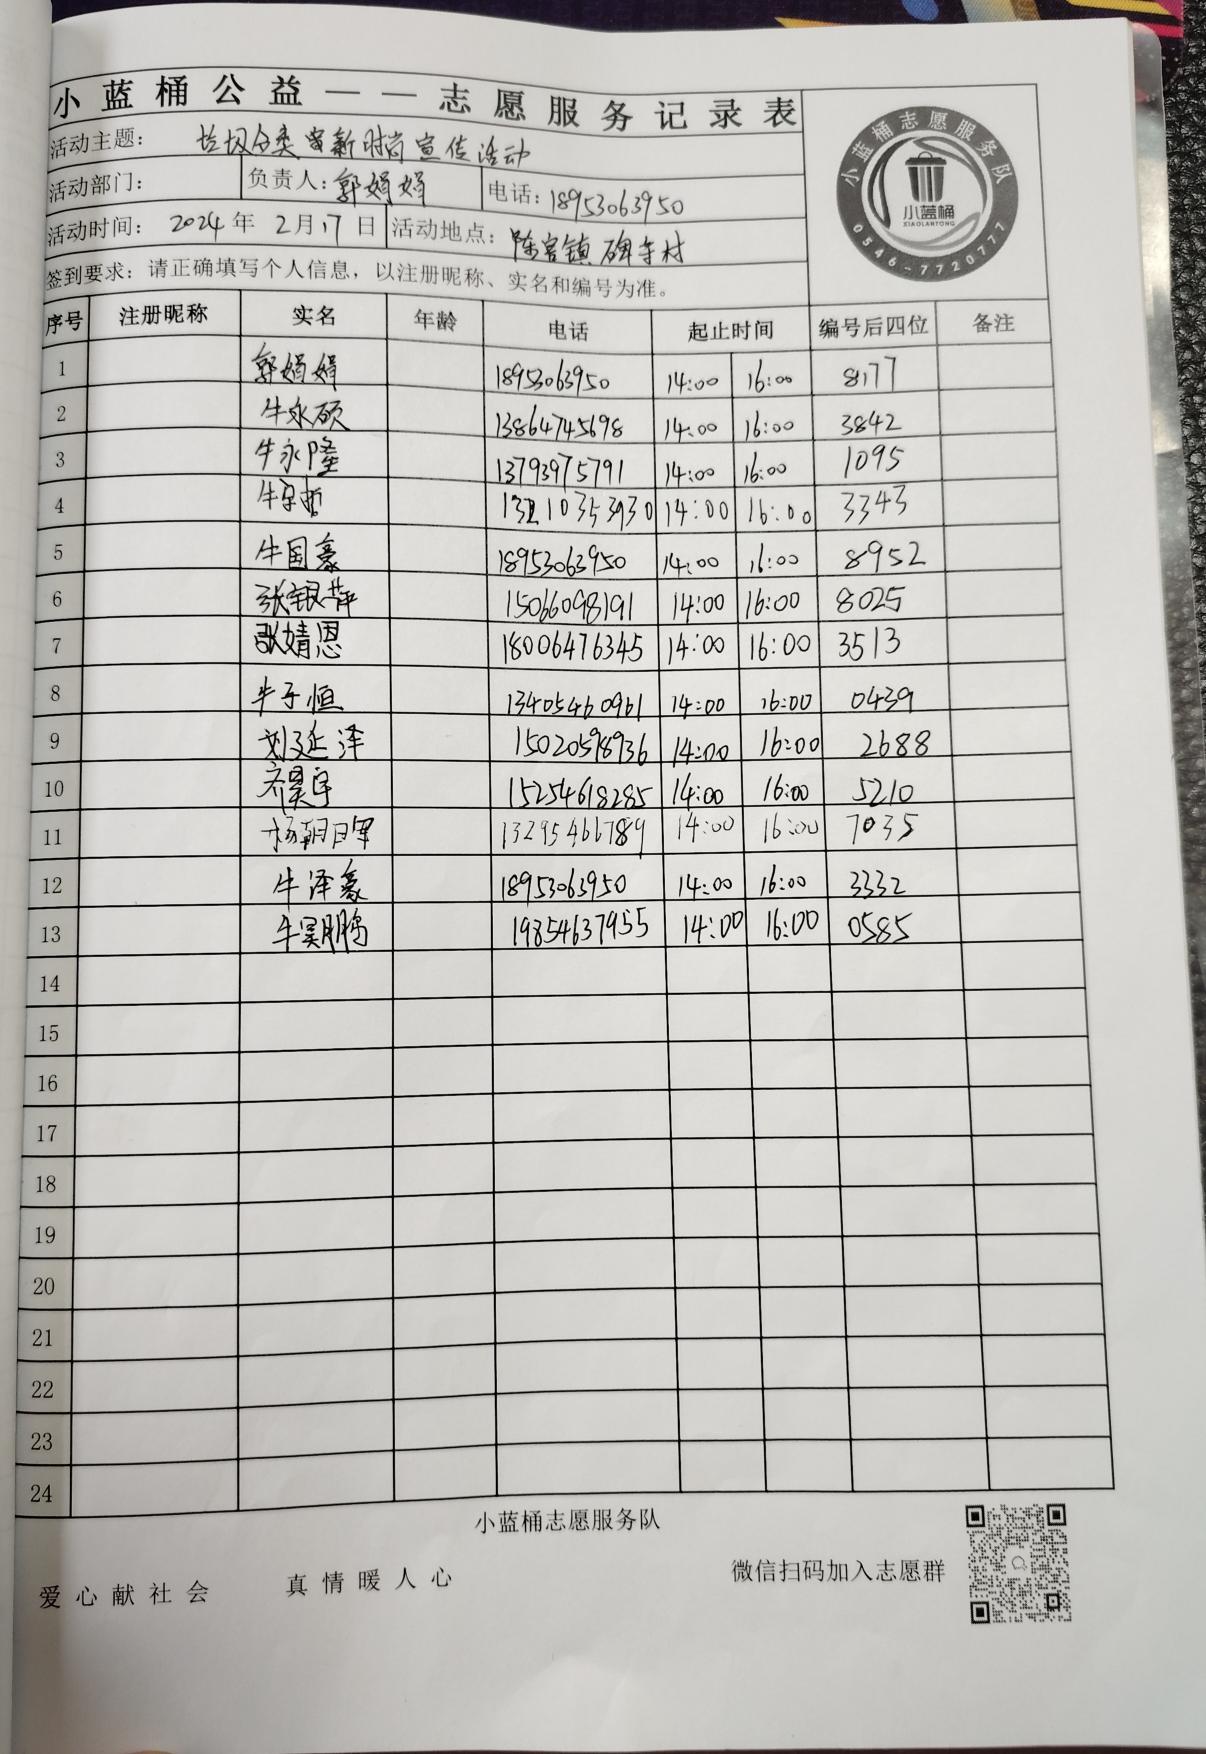 小蓝桶公益——志愿服务记录表
活动主题： 垃圾分类 新时尚宣传活动
活动部门： 负责人：郭娟娟 电话：18953063950
活动时间： 2024年 2月17日 活动地点：陈官镇碑寺村
签到要求：请正确填写个人信息，以注册昵称、实名和编号为准。
小蓝桶志愿服务队
小蓝桶
XIAOLANTONG
0546-7720777
序号 注册昵称 实名 年龄 电话 起止时间 编号后四位 备注
1 郭娟娟 18953063950 14:00 16:00 8177
2 牛永硕 13864745698 14:00 16:00 3842
3 牛永隆 13793975791 14:00 16:00 1095
4 牛宇哲 13210353930 14:00 16:00 3343
5 牛国豪 18953063950 14:00 16:00 8952
6 张银萍 15066098191 14:00 16:00 8025
7 张婧恩 18006476345 14:00 16:00 3513
8 牛子恒 13405460961 14:00 16:00 0439
9 刘延泽 15020598936 14:00 16:00 2688
10 齐昊宇 15254618285 14:00 16:00 5210
11 杨朝 13295466789 14:00 16:00 7035
12 牛泽豪 18953063950 14:00 16:00 3332
13 牛昊鹏 19854637955 14:00 16:00 0585
14
15
16
17
18
19
20
21
22
23
24
小蓝桶志愿服务队
爱心献社会 真情暖人心 微信扫码加入志愿群